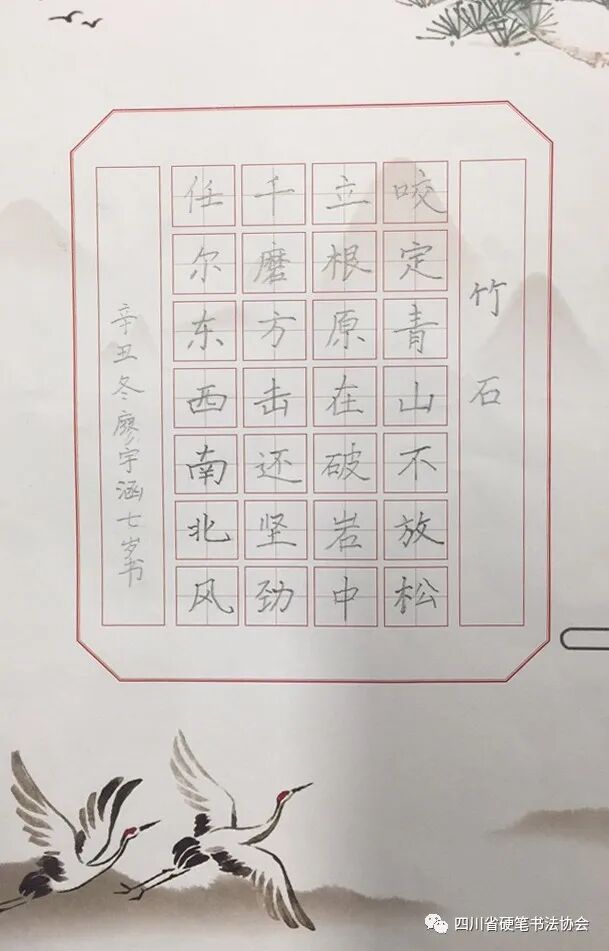 竹石
咬定青山不放松
立根原在破岩中
千磨方击还坚劲
任尔东西南北风
辛丑冬廖宇涵七岁书
四川省硬笔书法协会